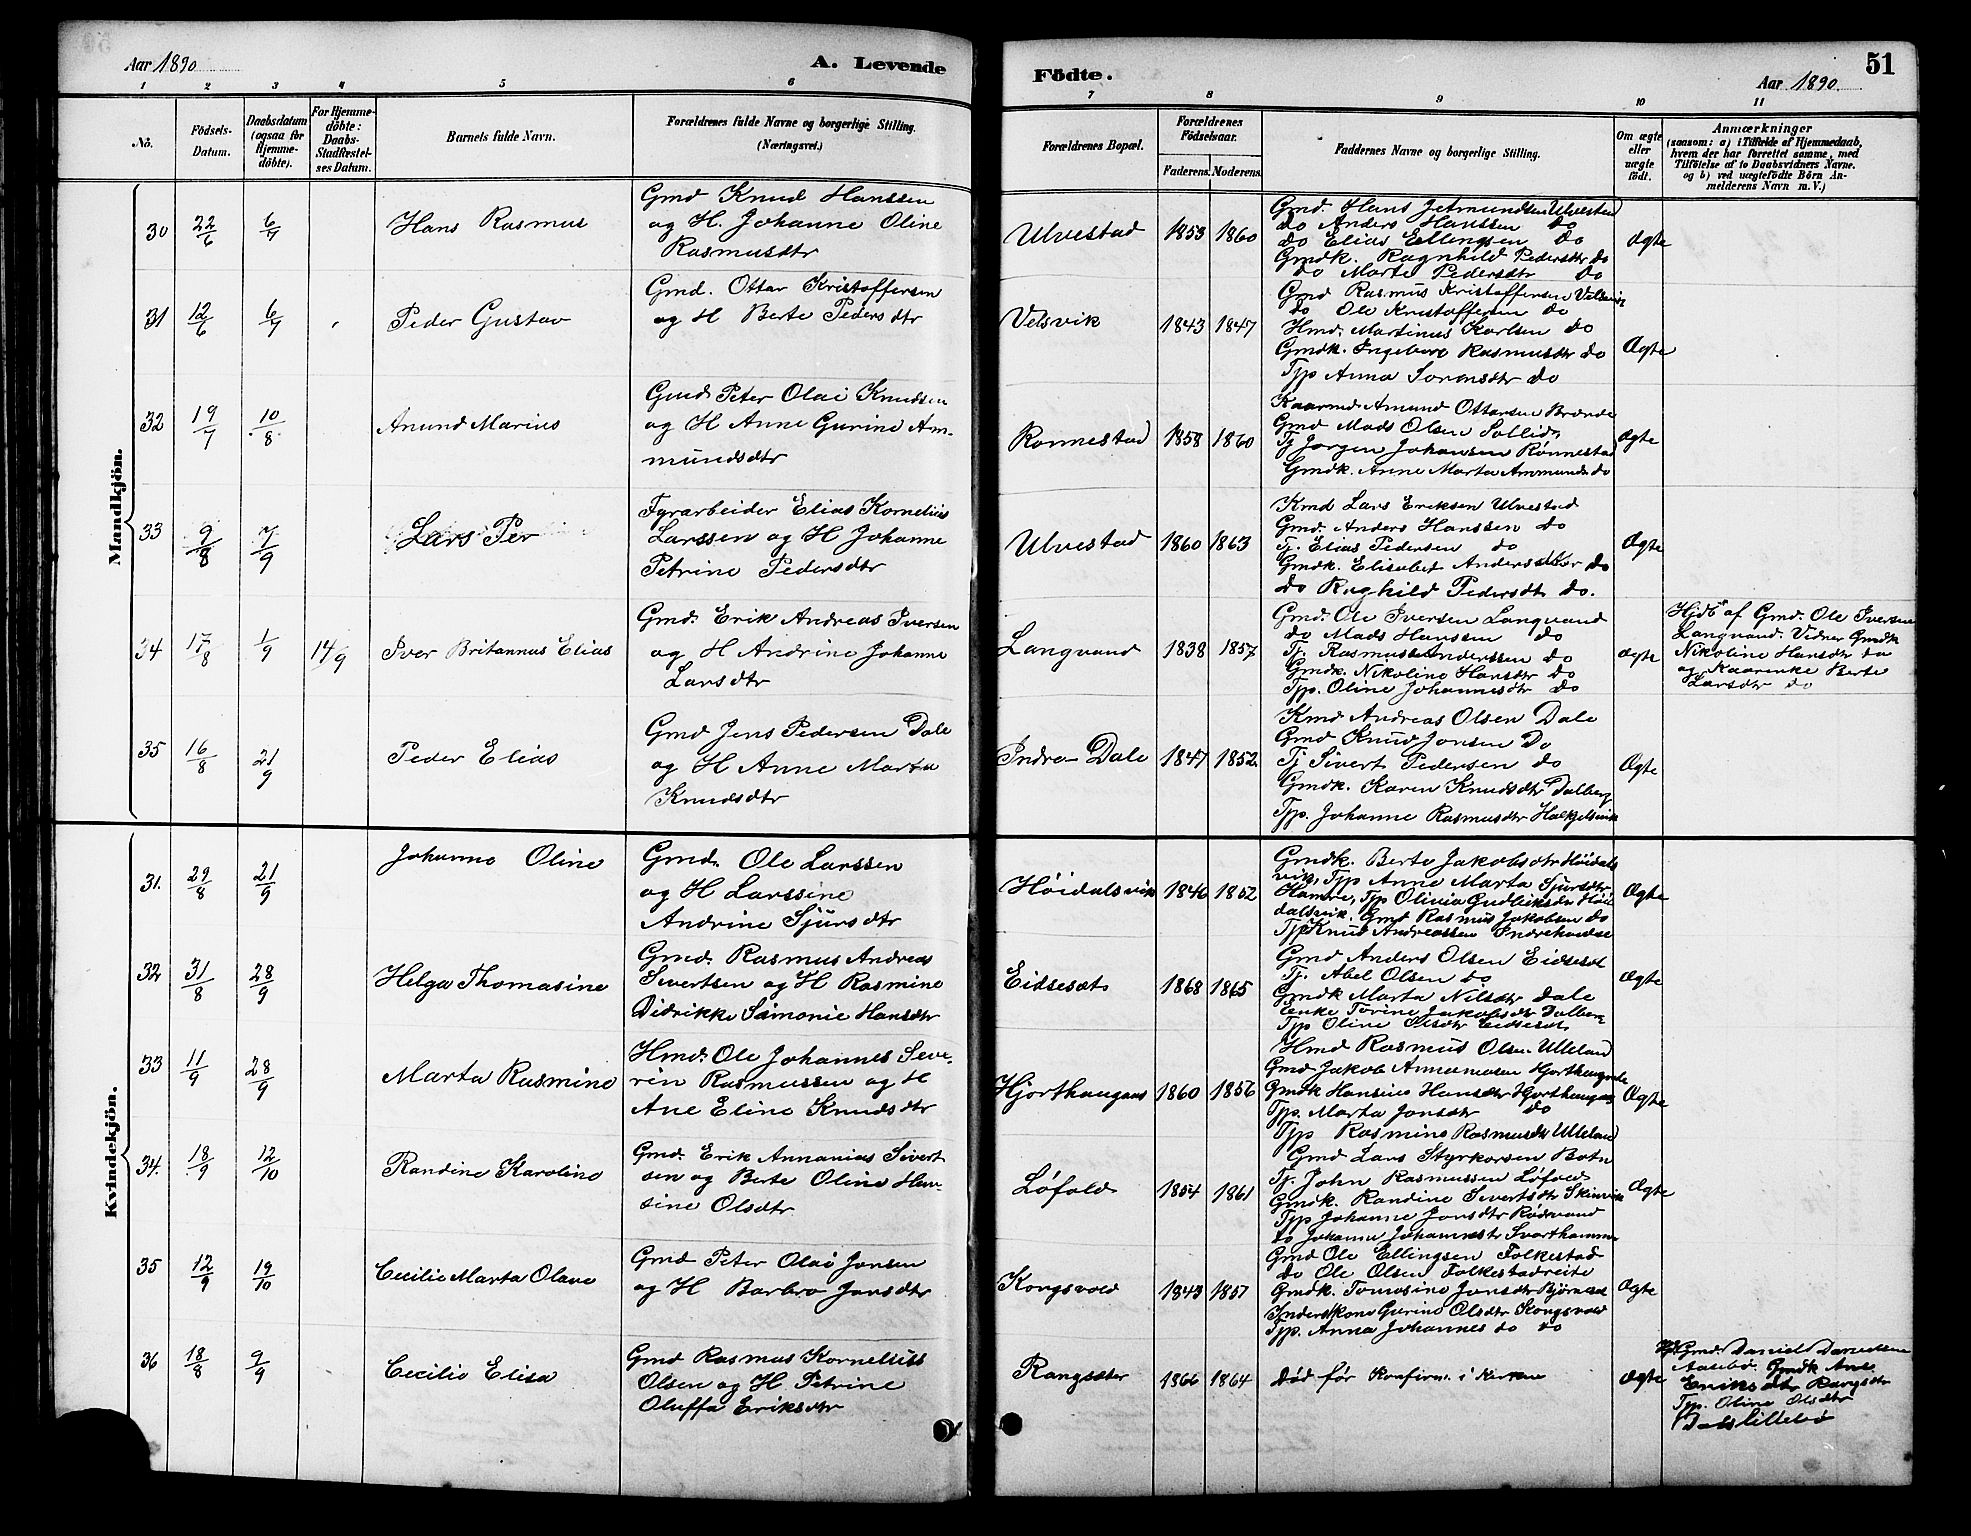 Aar 1890
A. Levende
Födte.
51
Aar 1890
1 2 3 4 5 6 7 8 9 10 11
No.
Födsels-
Datum.
Daabsdatum
(ogsaa for
Hjemme-
döbte).
For Hjemme-
döbte:
Daabs-
Stadfæstel-
ses Datum.
Barnets fulde Navn.
Forældrenes fulde Navne og borgerlige Stilling.
(Næringsvei.)
Forældrenes Bopæl.
Forældrenes
Födselsaar.
Faderens. Moderens.
Faddernes Navne og borgerlige Stilling.
Om ægte
eller
uægte
födt.
Anmærkninger
(saasom: a) i Tilfælde af Hjemmedaab,
hvem der har forrettet samme, med
Tilföielse af to Daabsvidners Navne.
og b) ved uægtefödte Börn An-
melderens Navn m. V.)
Mandkjön.
30 22/6 6/7 Hans Rasmus
Gmd Knud Hanssen
og H. Johanne Oline
Rasmusdtr
Ulvestad 1853 1860
Gmd. Hans Jetmundsen Ulvestad
do Anders Hanssen do
do Elias Ellingsen do
Gmdk. Ragnhild Pedersdtr do
do Marte Pedersdtr do
Ægte
31 12/6 6/7 Peder Gustav
Gmd. Ottar Kristoffersen
og H Berte Pedersdtr
Velsvik 1843 1847
Gmd Rasmus Kristoffersen Velsvik
do Ole Kristoffersen do
Hmd. Martinus Karlsen do
Gmdk. Ingeborg Rasmusdtr do
Tjp Anna Sorensdtr do
Ægte
32 19/7 10/8 Amund Marius
Gmd Peter Olai Knudsen
og H Anne Gurine Am-
mundsdtr
Ronnestad 1858 1860
Kaarmd. Amund Ottarsen
Gmd Mads Olsen Sollid
Tj Jorgen Johansen Rønnestad
Gmdk. Anne Marta Ammunds do
Ægte
33 9/8 7/9 Lars Per
Fyrarbeider Elias Kornelius
Larssen og H Johanne
Petrine Pedersdtr
Ulvestad 1860 1863
Kmd Lars Eriksen Ulvestad
Gmd. Anders Hanssen do
Tj. Elias Pedersen do
Gmdk. Elisabet Andersdtr do
do Raghild Pedersdtr do.
Ægte
34 17/8 1/9 14/9 Iver Britannus Elias
Gmd. Erik Andreas Iversen
og H Andrine Johanne
Larsdtr
Langvand 1838 1857
Gmd. Ole Iversen Langvand
do Mads Hanssen do
Tj. Rasmus Anderssen do
Gmdk. Nikoline Hansdtr do
Tjp. Oline Johannesdtr do
Ægte
Hjdb af Gmd. Ole Iversen
Langvand. Vidner Gmdk
Nikoline Hansdtr do
og Kaarenke Berte
Larsdtr do
35 16/8 21/9 Peder Elias
Gmd Jens Pedersen Dale
og H Anne Marta
Knudsdtr
Indre-Dale 1847 1852.
Kmd Andreas Olsen Dale
Gmd Knud Jonsen Do
Tj Sivert Pedersen do
Gmdk. Karen Knudsdtr Dalberg
Tjp. Johanne Rasmusdtr Halkjelsvik
Ægte
Kvindekjön.
31. 29/8 21/9 Johanne Oline
Gmd. Ole Larssen
og H Larssine
Andrine Sjursdtr
Høidalsvik 1846 1852
Gmdk. Berte Jakobsdtr Høidals
vik, Tjp Anne Marta Sjursdtr
Hamre, Tjp Olivia Gudleiksdtr Høi
dalsvik. Gmd Rasmus Jakobsen do
Tjp Knud Andreassen
Ægte
32 31/8 28/9 Helga Thomasine
Gmd. Rasmus Andreas
Sivertsen og H Rasmine
Didrikke Simonie Hansdtr
Eidsesæt 1868 1865
Gmd Anders Olsen Eidsesæt
Tj. Abel Olsen do
Gmdk Marta Nilsdtr Dale
Enke Torine Jakobsdtr Dalberg
Tjp Oline Olsdtr Eidseset
Ægte
33 11/9 28/9 Marta Rasmine
Hmd. Ole Johannes Seve-
rin Rasmussen og H
Ane Eline Knudsdtr
Hjorthaugans 1860 1856
Hmd Rasmus Olsen Ulleland
Gmd Jakob
Gmdk Hansine Hansdtr Hjorthaugans
Tjp. Marta Jonsdtr do
Tjp Rasmine Rasmusdtr Ulleland
Ægte
34. 18/9 12/10 Randine Karoline
Gmd. Erik Annanias Sivert
sen og Berte Oline Han-
sine Olsdtr
Løfold 1854 1861
Gmd Lars Styrkorsen Botn
Tj. John Rasmussen Løfold
Gmdk. Randine Sivertsdtr Skinvik
Tjp Johanne Jonsdtr Rødvand
do Johanna Johannesdtr Svarthamm
Ægte
35 12/9 19/10 Cecilie Marta Olave
Gmd Peter Olai Jonsen
og H Barbro Jonsdtr
Kongsvold 1843 1857
Gmd Ole Ellingsen Folkestad
do Ole Olsen Folkestadreite
Gmdk. Tomasine Jonsdtr
Inderskone Gurine Olsdtr Kongsvold
Tjp. Anna Johannes do do
Ægte
36 18/8 9/9 Cecilie Elisa
Gmd Rasmus Kornelius
Olsen og H. Petrine
Oluffa Eriksdtr
Rangsæter 1866 1864
Død før Konfirm. i Kirken
Ægte
Gmd Daniel Danielsen
Aasebø. Gmdk Ane
Eriksdtr Rangsætr
Tjp. Oline Olsdtr
Lillebø